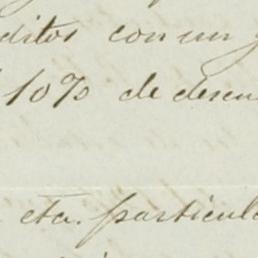 ditos con un
10% de descu
cta. particula